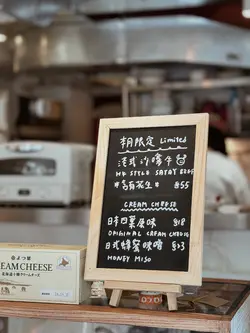 本月限定 Limited
港式沙嗲牛
HK STYLE SATAY BEEF
$55
CREAM CHEESE
日本四葉原味 $18
ORIGINAL CREAM CHEESE
日式蜂蜜味噌 $23
HONEY MISO
よつ葉
CREAM CHEESE